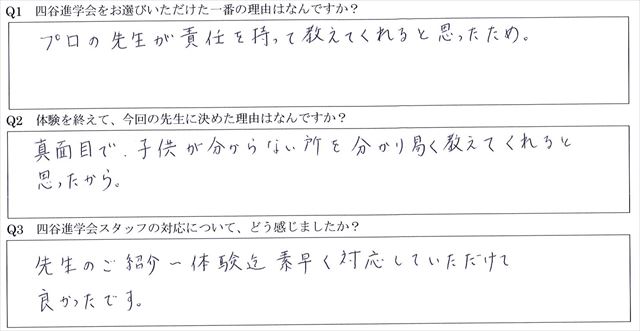 Q1 四谷進学会をお選びいただけた一番の理由はなんですか？
プロの先生が責任を持って教えてくれると思ったため。
Q2 体験を終えて、今回の先生に決めた理由はなんですか？
真面目で、子供が分からない所を分かり易く教えてくれると
思ったから。
Q3 四谷進学会スタッフの対応について、どう感じましたか？
先生のご紹介〜体験迄素早く対応していただけて
良かったです。